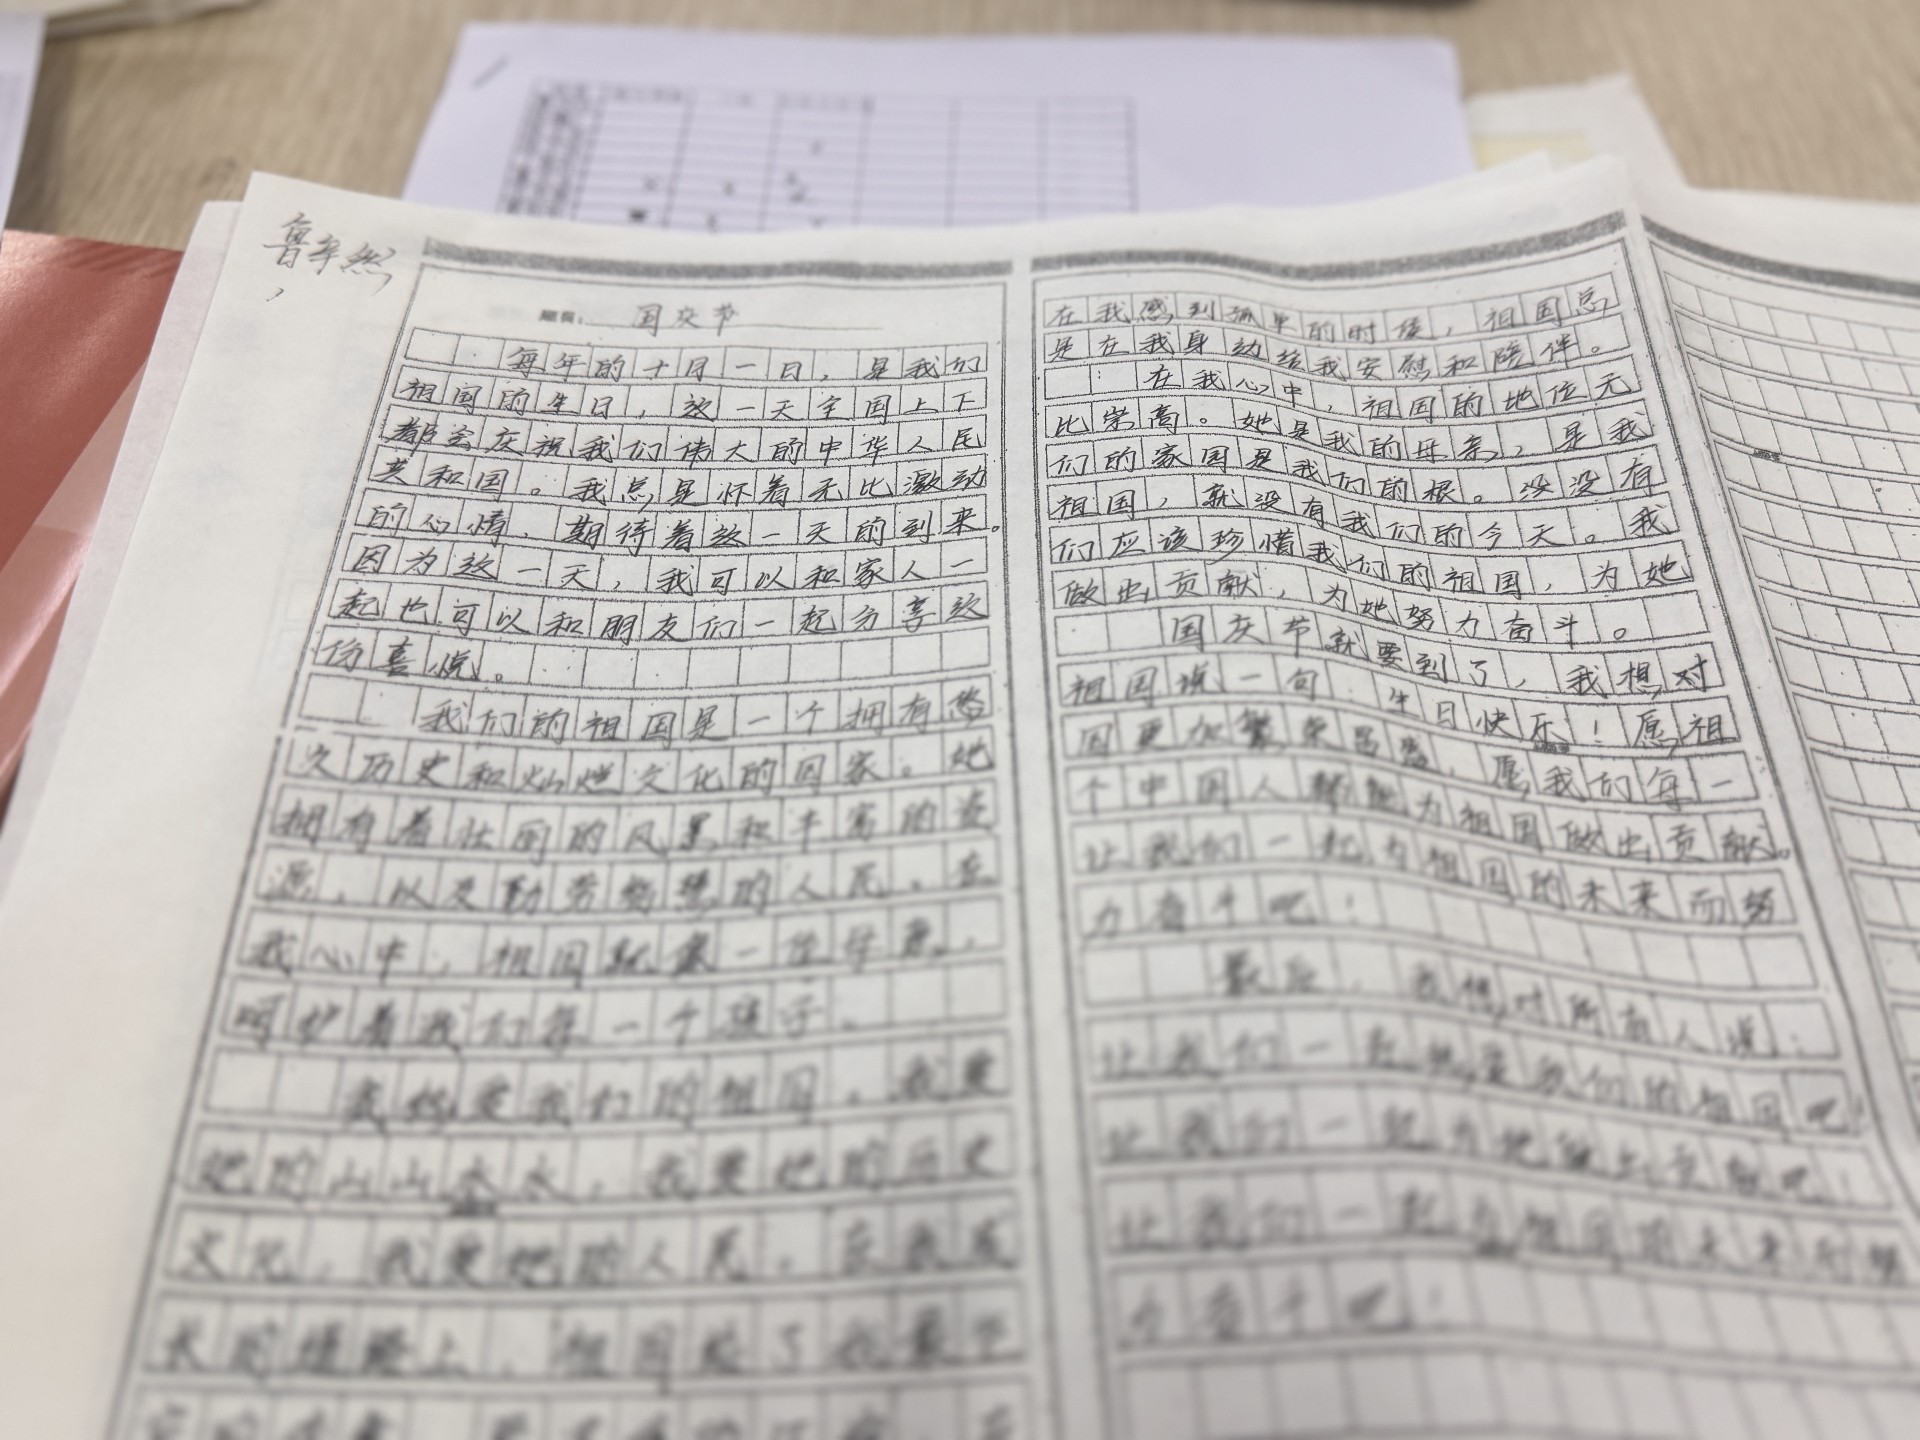 鲁辛然
题目： 国庆节
每年的十月一日，是我们
祖国的生日，这一天全国上下
都会庆祝我们伟大的中华人民
共和国。我总是怀着无比激动
的心情，期待着这一天的到来。
因为这一天，我可以和家人一
起也可以和朋友们一起分享这
份喜悦。
我们的祖国是一个拥有悠
久历史和灿烂文化的国家。她
拥有着壮丽的风景和丰富的资
源，以及勤劳智慧的人民。在
我心中，祖国就像一位母亲，
呵护着我们每一个孩子。
我热爱我们的祖国，我爱
她的山山水水，我爱她的历史
文化，我爱她的人民。在我成
长的道路上，祖国给了我最
在我感到孤单的时候，祖国总
是在我身边给我安慰和陪伴。
在我心中，祖国的地位无
比崇高。她是我的母亲，是我
们的家国是我们的根。没没有
祖国，就没有我们的今天。我
们应该珍惜我们的祖国，为她
做出贡献，为她努力奋斗。
国庆节就要到了，我想对
祖国说一句：生日快乐！愿祖
国更加繁荣昌盛，愿我们每一
个中国人都能为祖国做出贡献。
让我们一起为祖国的未来而努
力奋斗吧！
最后，我想对所有人说：
让我们一起热爱我们的祖国吧！
让我们一起为她做出贡献吧！
让我们一起为祖国的未来而努
力奋斗吧！